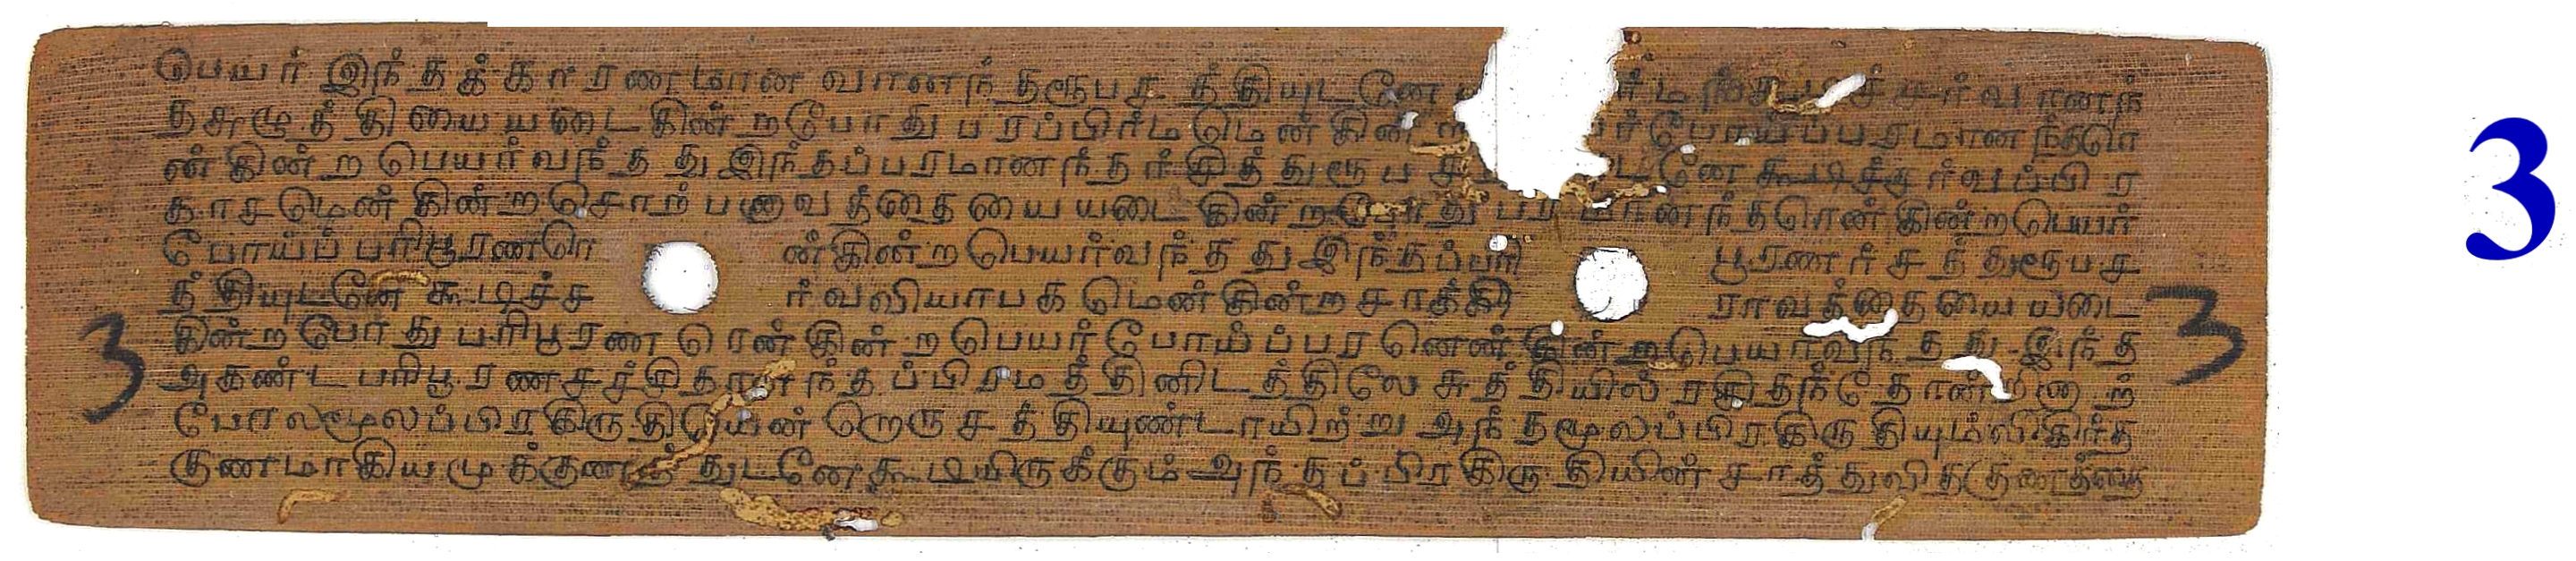 பெயர் இந்தக்காரணமான வானந்தரூபசத்தியுடனே
தஅழுத்தியையயடைகின்றபோது பரப்பிர்ம மென்கின்ற போய்ப்பரமானந்தரெ
ன்கின்ற பெயர்வந்தது இந்தப்பரமானந்தர்சித்துரூப டனே கூடிச்சர்வப்பிர
காசமென்கின்றசொற்பணுவத்தையையயடைகின்றபோது பரமானந்தரென்கின்றபெயர்
போய்ப் பரிபூரணரெ ன்கின்றபெயர்வந்தது இந்தப்பரி பூரணர்சத்துரூபச
த்தியுடனே கூடிச்ச ர்வவியாபக மென்கின்றசாக்கி ராவத்தையையயடை
கின்றபோது பரிபூரண ரென்கின்றபெயர்போய்ப்பரனென்கின்றபெயர்வந்தது இந்த
அகண்டபரிபூரணசச்சிதானந்தப்பிரமத்தினிடத்திலே சுத்தியில் ரசிதந்தோன்றினாற்
போலமூலப்பிரகிருதியென்றொருசத்தியுண்டாயிற்று அந்தமூலப்பிரகிருதியும்லிகிர்த
குணமாகியமுக்குணத்துடனேகூடியிருக்கும் அந்தப்பிரகிருதியின் சாத்துவிதகுணத்தை
3
3
3